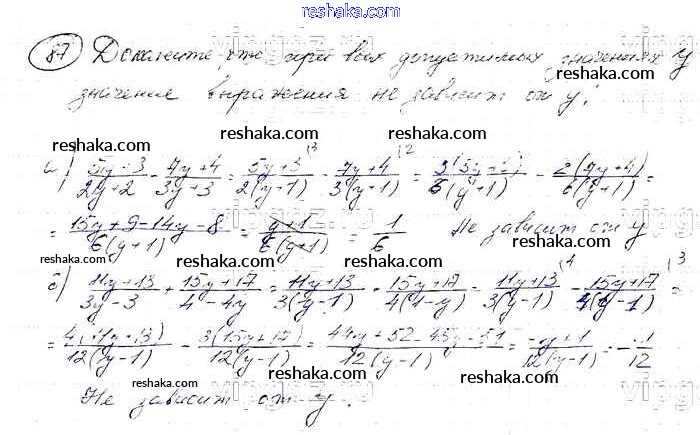 reshaka.com
87 Докажите, что при всех допустимых значениях y
reshaka.com
значение выражения не зависит от y:
reshaka.com reshaka.com reshaka.com
а) (5y+3)/(2y+2) - (7y+4)/(3y+3) = (5y+3)/(2(y+1)) \3 - (7y+4)/(3(y+1)) \2 = 3(5y+3)/(6(y+1)) - 2(7y+4)/(6(y+1)) =
= (15y+9-14y-8)/(6(y+1)) = (y+1)/(6(y+1)) = 1/6 Не зависит от y
reshaka.com reshaka.com reshaka.com
б) (11y+13)/(3y-3) + (15y+17)/(4-4y) = (11y+13)/(3(y-1)) + (15y+17)/(4(1-y)) = (11y+13)/(3(y-1)) \4 - (15y+17)/(4(y-1)) \3 =
= 4(11y+13)/(12(y-1)) - 3(15y+17)/(12(y-1)) = (44y+52-45y-51)/(12(y-1)) = (-y+1)/(12(y-1)) = -1/12
reshaka.com reshaka.com reshaka.com
Не зависит от y.
reshaka.com